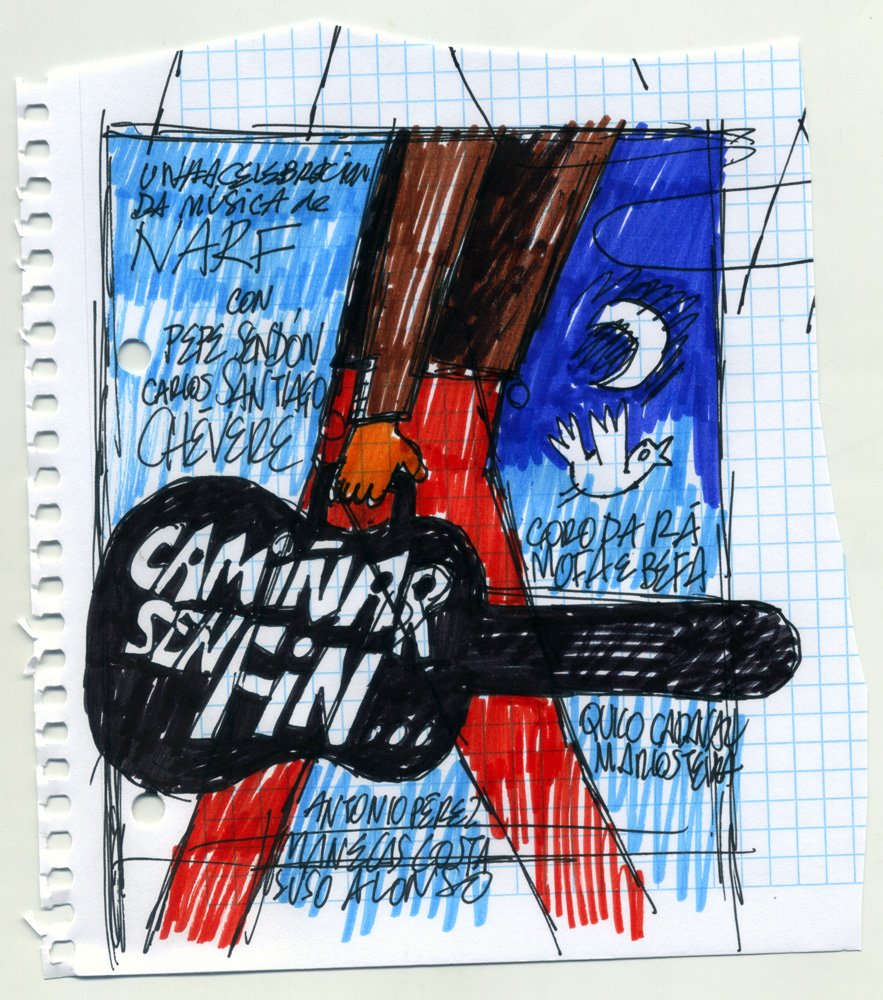 UNHA CELEBRACIÓN
DA MÚSICA de
NARF
CON
PEPE SENDÓN
CARLOS SANTIAGO
CHÉVERE
CAMIÑAR
SEN
FIN...
CORO DA RÁ
MOFA E BEFA
QUICO CADAVAL
MARCOS TEIRA
ANTONIO PEREZ
MANECAS COSTA
SUSO ALONSO